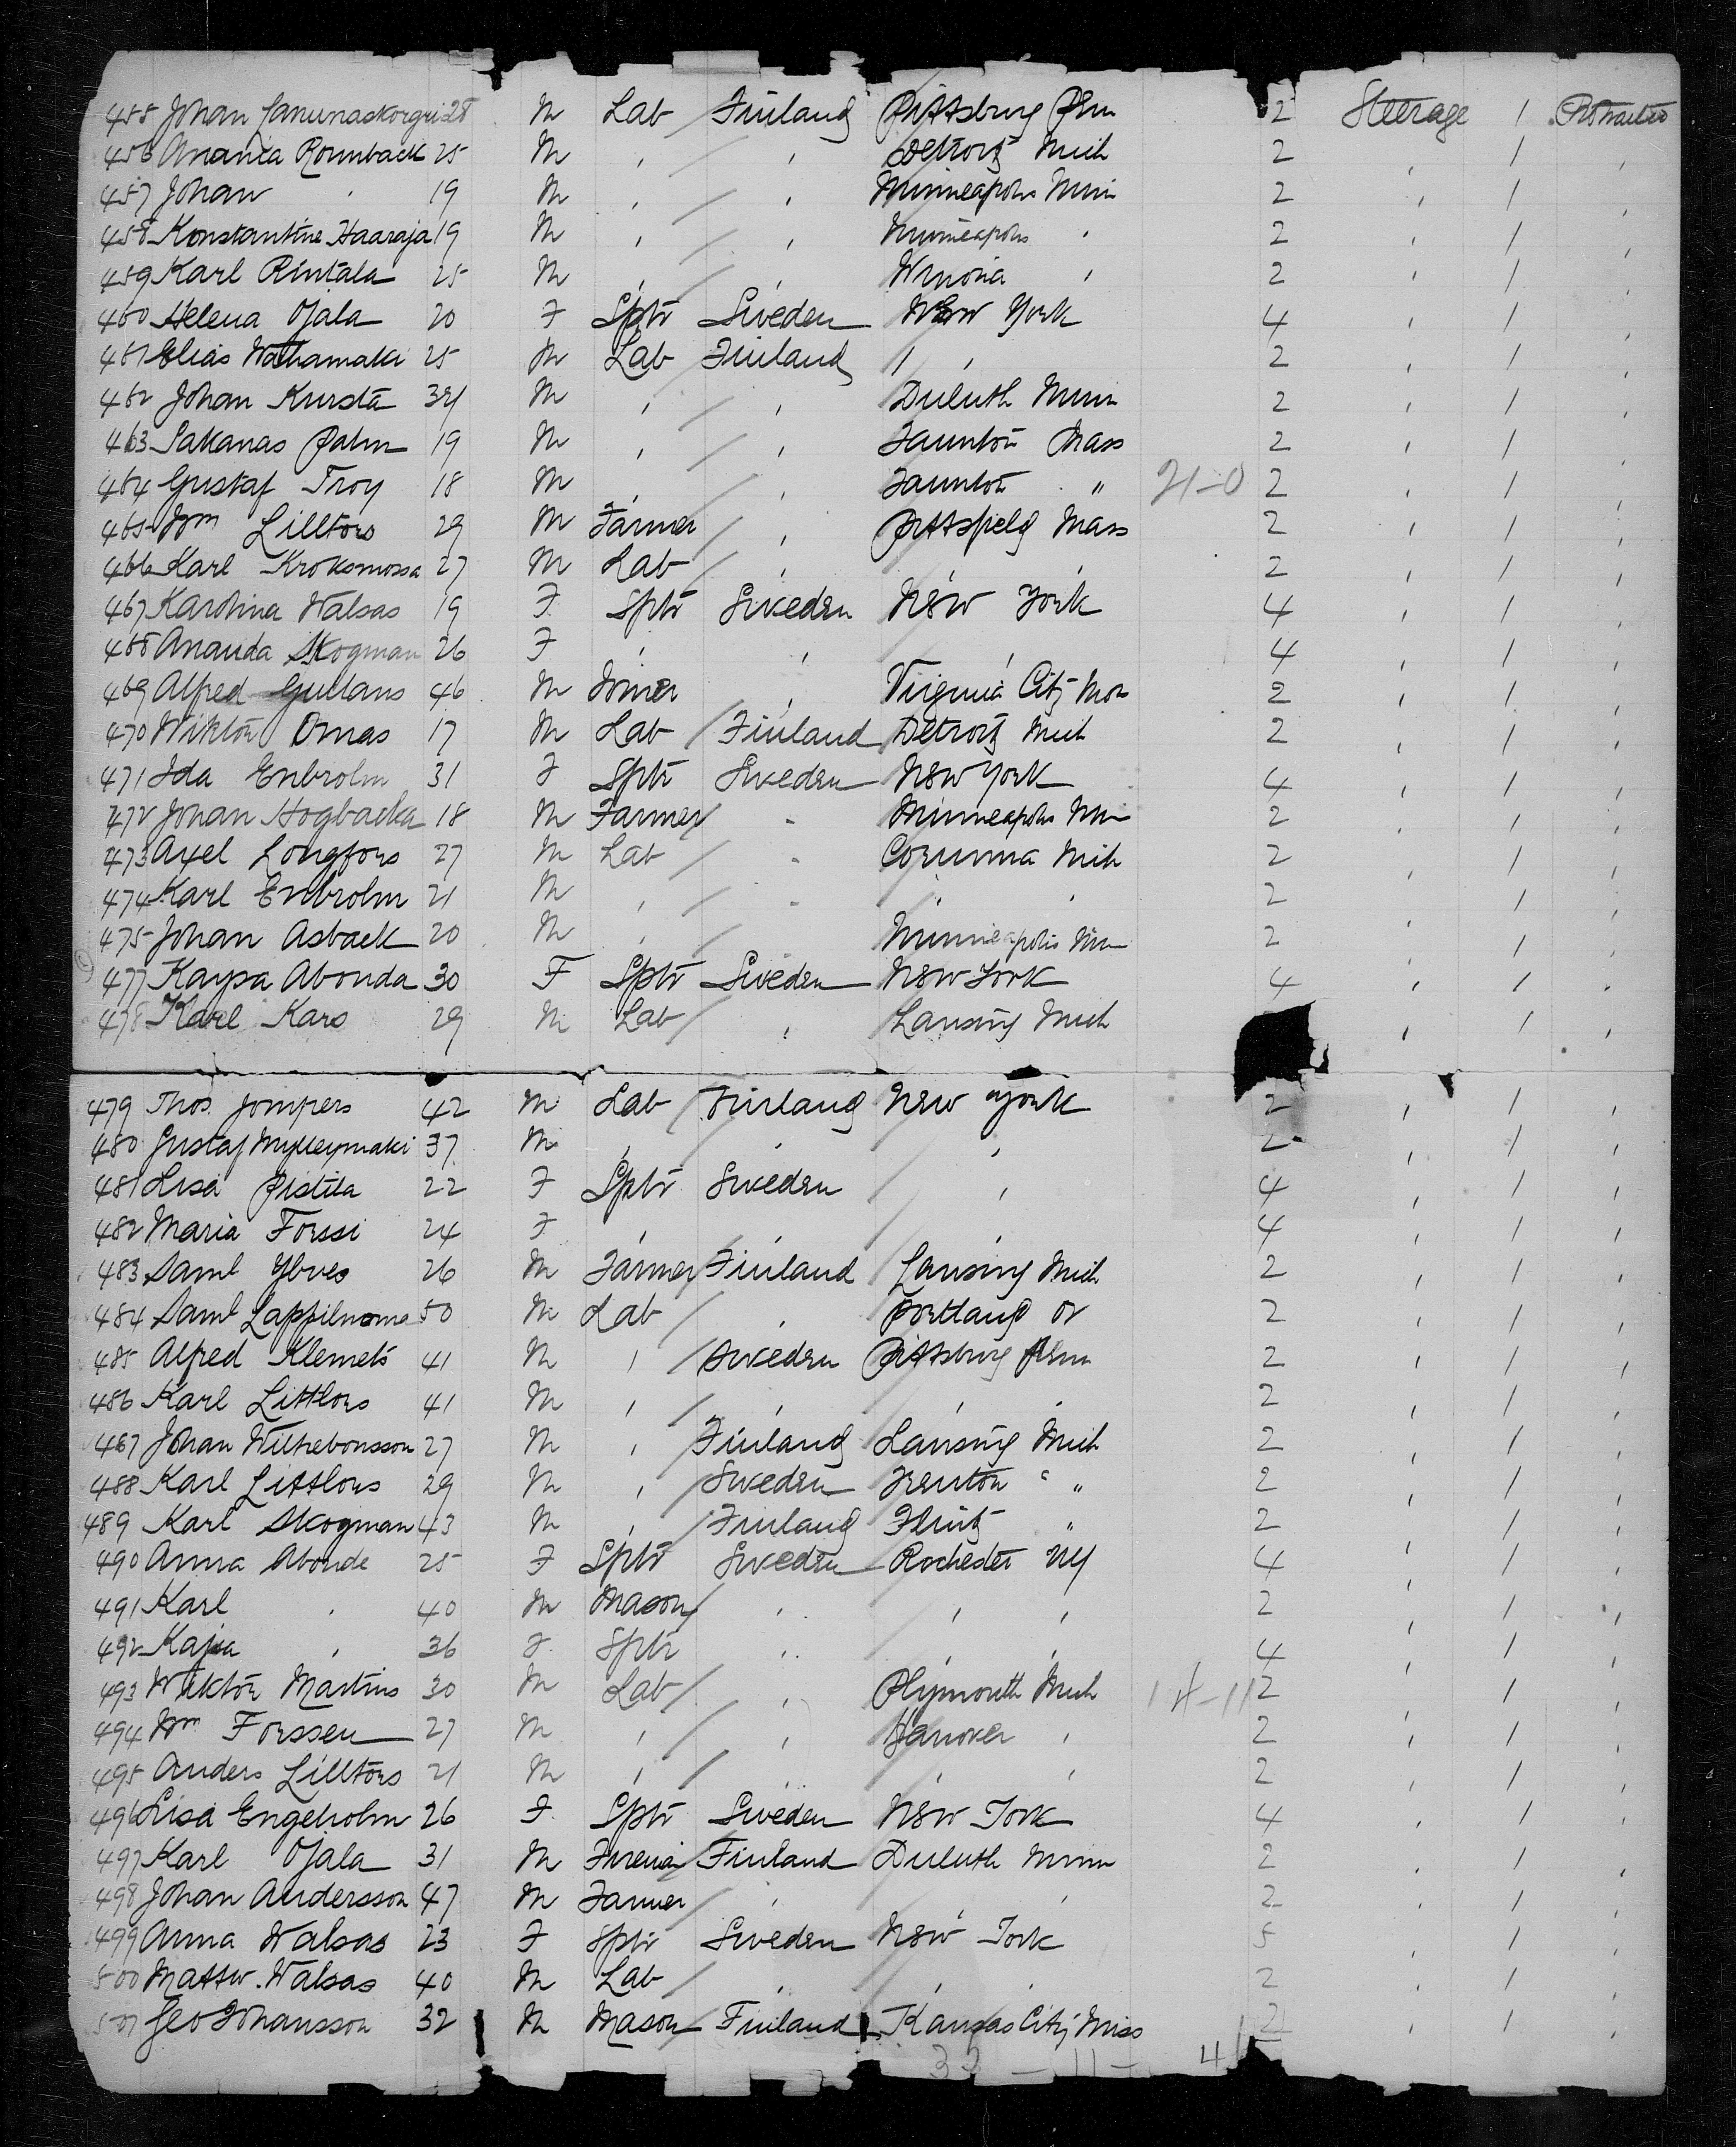 455 Johan 28 M Lab Finland Pittsburg Penn 2 Steerage 1 Protracted
456 Anania Ronnback 25 M , , Detroit Mich 2 , 1 ,
457 Johan , 19 M , , Minneapolis Minn 2 , 1 ,
458 Konstantine Haaraja 19 M , , Minneapolis , 2 , 1 ,
459 Karl Rintala 25 M , , Winona , 2 , 1 ,
460 Helena Ojala 20 F Sptr Sweden New York 4 , 1 ,
461 Elias Wathamaki 25 M Lab Finland , , 2 , 1 ,
462 Johan Kursta M , , Duluth Minn 2 , 1 ,
463 Sakanas Palm 19 M , , Taunton Mass 2 , 1 ,
464 Gustaf Troy 18 M , , Taunton " 21-0 2 , 1 ,
465 Wm Lilltors 29 M Farmer , Pittsfield Mass 2 , 1 ,
466 Karl Kroksmossa 27 M Lab , , , 2 , 1 ,
467 Karolina Walsas 19 F Sptr Sweden New York 4 , 1 ,
468 Ananda Skogman 26 F , , , 4 , 1 ,
469 Alfred Gullans 46 M Joiner , Virginia City Mon 2 , 1 ,
470 Wiktor Omas 17 M Lab Finland Detroit Mich 2 , 1 ,
471 Ida Enbrolm 31 F Sptr Sweden New York 4 , 1 ,
472 Johan Hogbacka 18 M Farmer " Minneapolis Min 2 , 1 ,
473 Axel Longfors 27 M Lab " Corunna Mich 2 , 1 ,
474 Karl Enbrolm 21 M , " , , 2 , 1 ,
475 Johan Asback 20 M , Minneapolis Min 2 , 1 ,
477 Kaysa Abonda 30 F Sptr Sweden New York 4 , 1 ,
478 Karl Kars 29 M Lab , Lansing Mich , 1 ,
479 Thos Jompers 42 M Lab Finland New York 2 , 1 ,
480 Gustaf Mylleymaki 37 M , , , 2 , 1 ,
481 Lisa Pistila 22 F Sptr Sweden , 4 , 1 ,
482 Maria Forssi 24 F , , , 4 , 1 ,
483 Saml Ybves 26 M Farmer Finland Lansing Mich 2 , 1 ,
484 Saml 50 M Lab , Portland Or 2 , 1 ,
485 Alfred Klemets 41 M , Sweden Pittsburg Penn 2 , 1 ,
486 Karl Littlors 41 M , , , , 2 , 1 ,
487 Johan 27 M , Finland Lansing Mich 2 , 1 ,
488 Karl Littlors 29 M , Sweden Trenton " " 2 , 1 ,
489 Karl Skogman 43 M , Finland Flint " 2 , 1 ,
490 Anna Abonde 25 F Sptr Sweden Rochester NY 4 , 1 ,
491 Karl , 40 M Mason , , , 2 , 1 ,
492 Kajsa , 36 F Sptr , , , 4 , 1 ,
493 Wiktor Martins 30 M Lab , Plymouth Mich 14-11 2 , 1 ,
494 Wm Forssen 27 M , , Hanover , 2 , 1 ,
495 Anders Lilltors 21 M , , , , 2 , 1 ,
496 Lisa Engeholm 26 F Sptr Sweden New York 4 , 1 ,
497 Karl Ojala 31 M Finland Duluth Minn 2 , 1 ,
498 Johan Andersson 47 M Farmer , , , 2 , 1 ,
499 Anna Walsas 23 F Sptr Sweden New York 5 , 1 ,
500 Mattw. Walsas 40 M Lab , , , 2 , 1 ,
501 Geo Johansson 32 M Mason Finland Kansas City Miss 2 , 1 ,